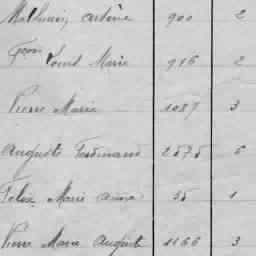 Mathurin, Arsène 900 2
François Louis Marie 916 2
Pierre Marie 1087 3
Auguste Ferdinand 2575 6
Félix Marie Anne 55 1
Pierre Marie Auguste 1166 3